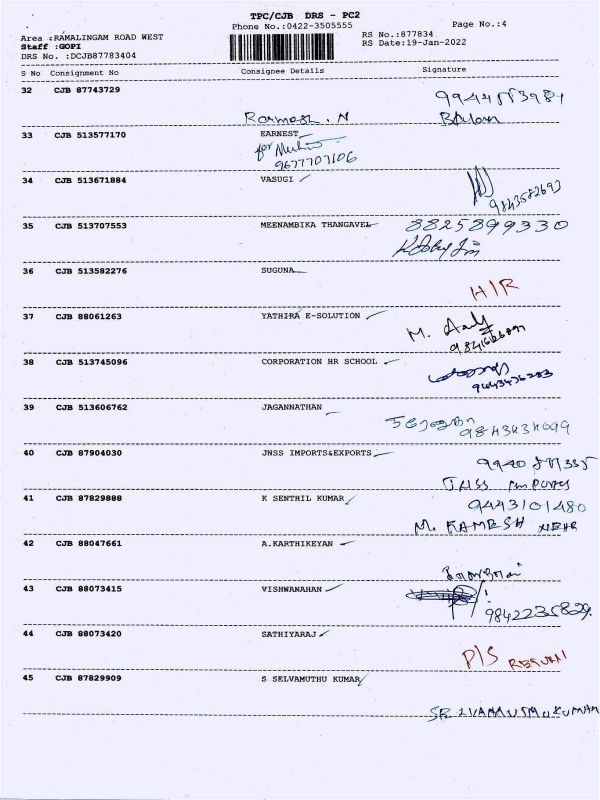 TPC/CJB DRS - PC2
Phone No.:0422-3505555
Page No.:4
Area :RAMALINGAM ROAD WEST
Staff :GOPI
DRS No. :DCJB87783404
RS No.:877834
RS Date:19-Jan-2022
S No Consignment No Consignee Details Signature
32 CJB 87743729
Ramesh . N
33 CJB 513577170 EARNEST
for
9677707106
34 CJB 513671884 VASUGI
9843582692
35 CJB 513707553 MEENAMBIKA THANGAVEL 8825899330
36 CJB 513582276 SUGUNA
H/R
37 CJB 88061263 YATHIRA E-SOLUTION
M.
38 CJB 513745096 CORPORATION HR SCHOOL
9443476283
39 CJB 513606762 JAGANNATHAN
9843434699
40 CJB 87904030 JNSS IMPORTS&EXPORTS
JNSS
41 CJB 87829888 K SENTHIL KUMAR 9443101480
M. RAMESH
42 CJB 88047661 A.KARTHIKEYAN
43 CJB 88073415 VISHWANAHAN
9842235829
44 CJB 88073420 SATHIYARAJ
P/S RETURN
45 CJB 87829909 S SELVAMUTHU KUMAR